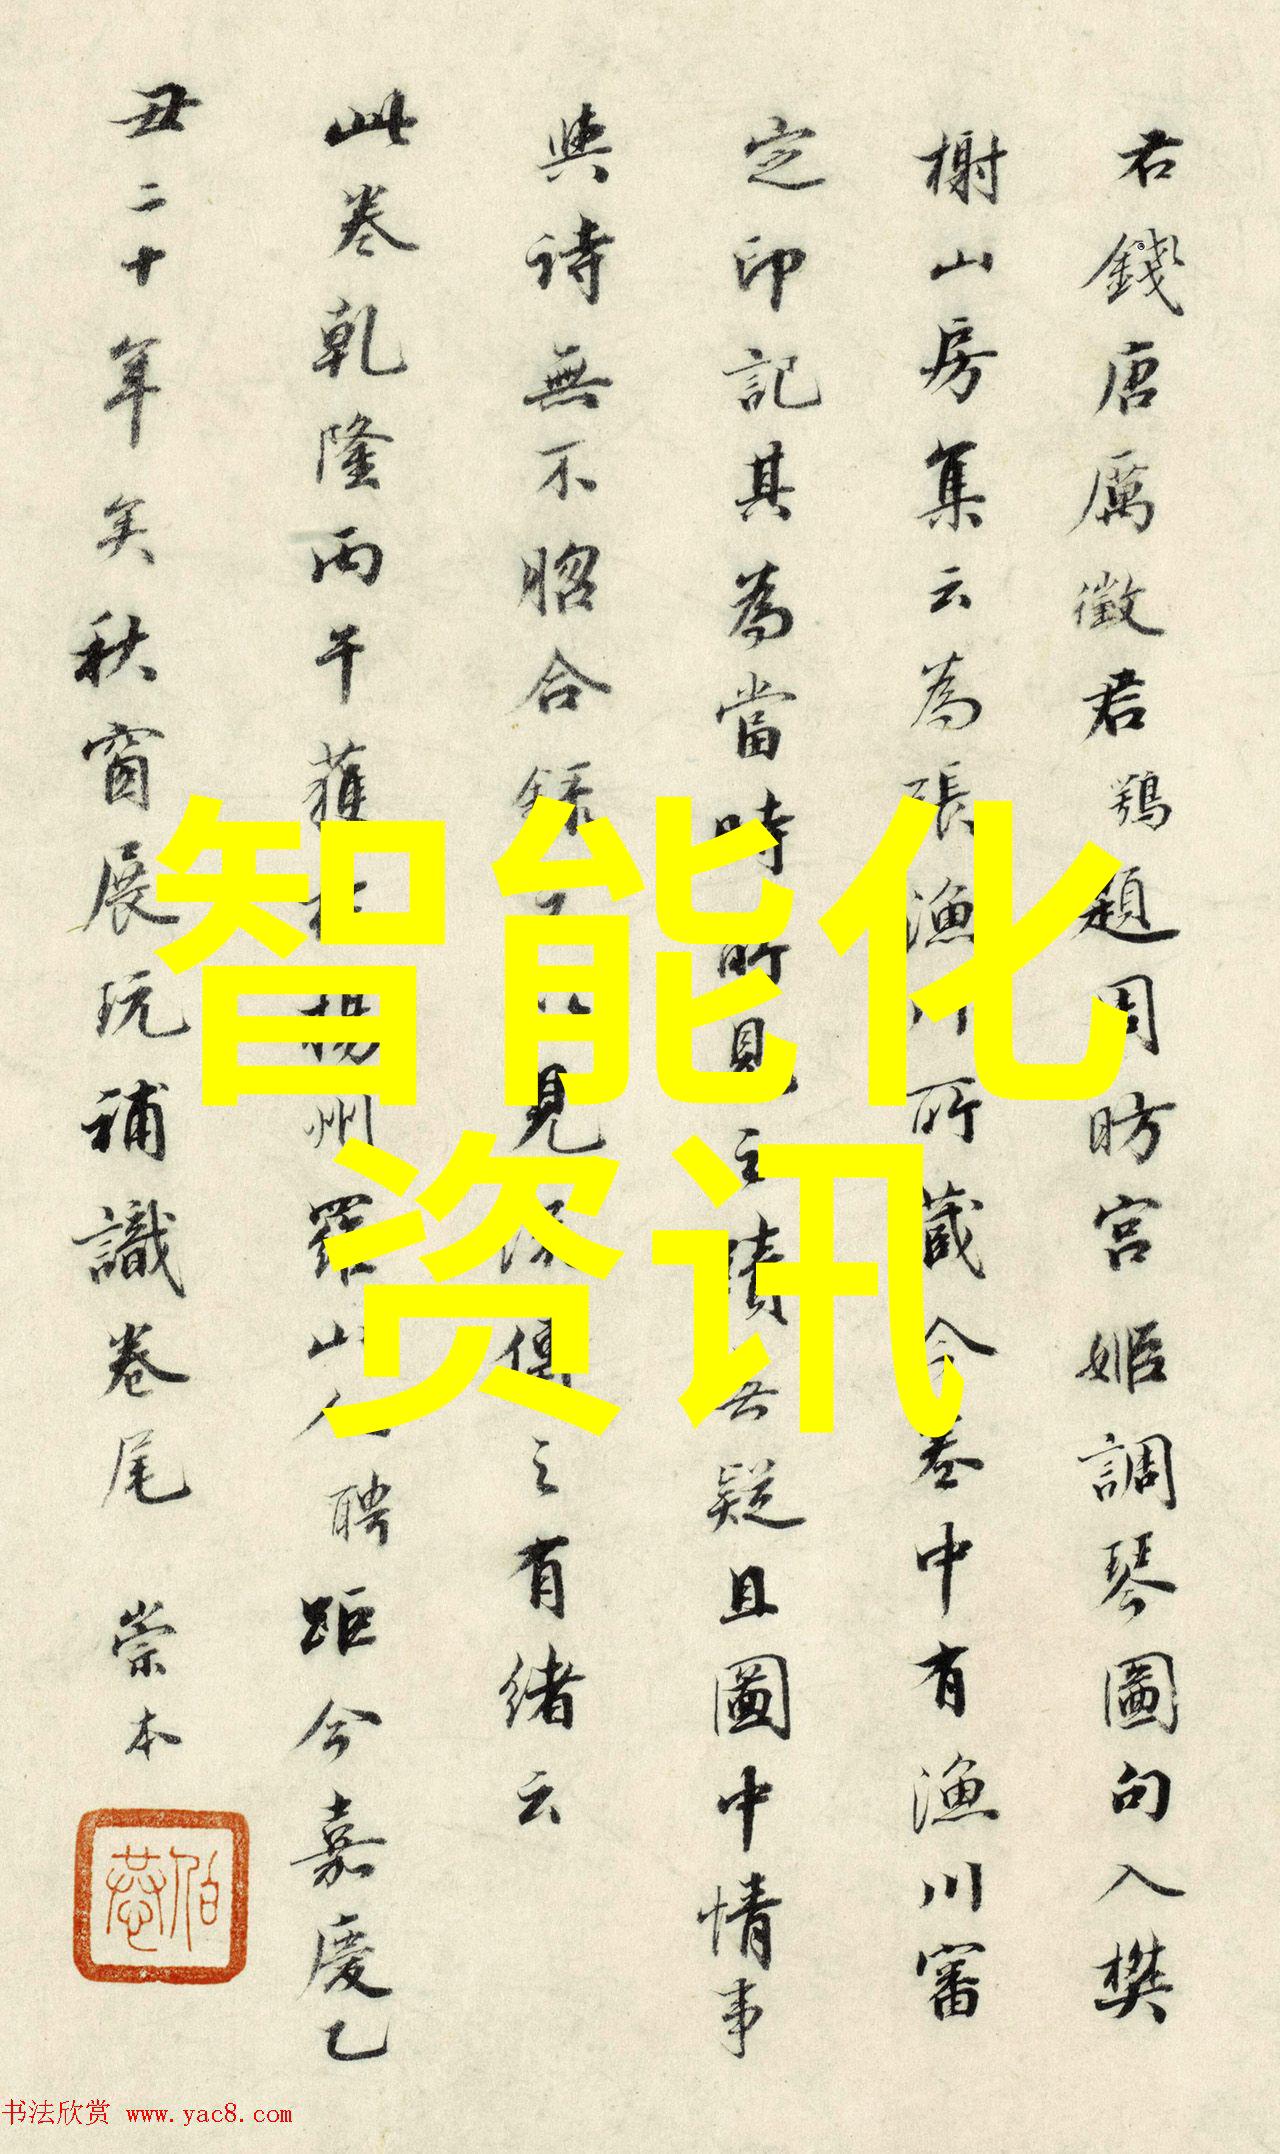 君錢唐厲徵君鶚題周昉宮姬調琴圖句入樊
榭山房集云為張漁川所藏今卷中有漁川審
定印記其為當時所見之蹟無疑且圖中情事
與詩無不昭合錄見流傳之有緒云
此卷乾隆丙午獲於揚州羅山人聘距今嘉慶乙
丑二十年矣秋窗展玩補識卷尾 崇本
智能化
资讯
书法欣赏 www.yac8.com